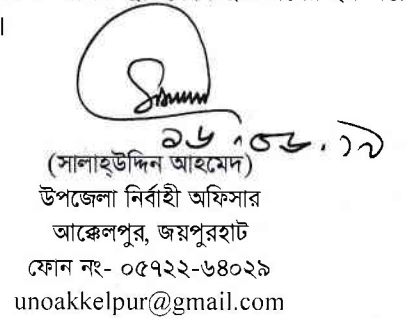 ।
১৬.০৬.১৯
(সালাহ্উদ্দিন আহমেদ)
উপজেলা নির্বাহী অফিসার
আক্কেলপুর, জয়পুরহাট
ফোন নং- ০৫৭২২-৬৪০২৯
unoakkelpur@gmail.com